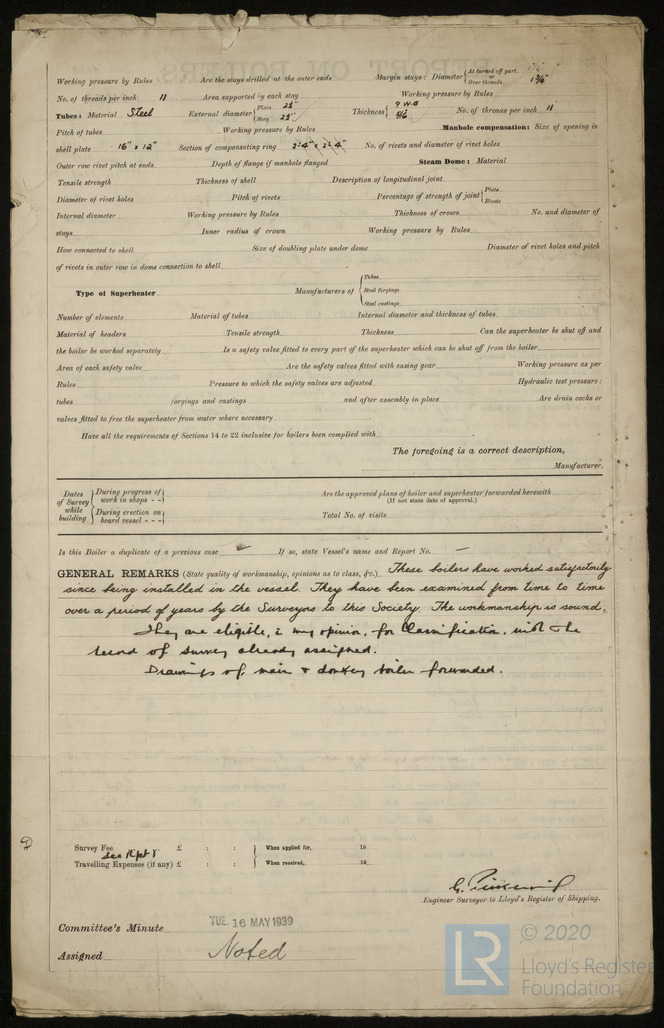 Working pressure by Rules Are the stays drilled at the outer ends Margin stays: Diameter { At turned off part. or Over threads 1 3/4"
No. of threads per inch 11 Area supported by each stay Working pressure by Rules
Tubes: Material Steel External diameter { Plain 2½" Stay 2½" Thickness { 9 W.G 5/16 No. of threads per inch 11
Pitch of tubes Working pressure by Rules Manhole compensation: Size of opening in
shell plate 16" x 12" Section of compensating ring No. of rivets and diameter of rivet holes
Outer row rivet pitch at ends Depth of flange if manhole flanged Steam Dome: Material
Tensile strength Thickness of shell Description of longitudinal joint
Diameter of rivet holes Pitch of rivets Percentage of strength of joint { Plate Rivets
Internal diameter Working pressure by Rules Thickness of crown No. and diameter of
stays Inner radius of crown Working pressure by Rules
How connected to shell Size of doubling plate under dome Diameter of rivet holes and pitch
of rivets in outer row in dome connection to shell
Type of Superheater Manufacturers of { Tubes Steel forgings Steel castings
Number of elements Material of tubes Internal diameter and thickness of tubes
Material of headers Tensile strength Thickness Can the superheater be shut off and
the boiler be worked separately Is a safety valve fitted to every part of the superheater which can be shut off from the boiler
Area of each safety valve Are the safety valves fitted with easing gear Working pressure as per
Rules Pressure to which the safety valves are adjusted Hydraulic test pressure:
tubes forgings and castings and after assembly in place Are drain cocks or
valves fitted to free the superheater from water where necessary
Have all the requirements of Sections 14 to 22 inclusive for boilers been complied with
The foregoing is a correct description,
Manufacturer.
Dates of Survey while building { During progress of work in shops - - } Are the approved plans of boiler and superheater forwarded herewith
(If not state date of approval.)
{ During erection on board vessel - - - } Total No. of visits
Is this Boiler a duplicate of a previous case — If so, state Vessel's name and Report No. —
GENERAL REMARKS (State quality of workmanship, opinions as to class, &c.) These boilers have worked satisfactorily
since being installed in the vessel. They have been examined from time to time
over a period of years by the Surveyors to this Society. The workmanship is sound.
They are eligible, in my opinion, for Classification, with the
record of survey already assigned.
Drawings of main & donkey boiler forwarded.
Survey Fee £ : : When applied for, 19
See Rept 1
Travelling Expenses (if any) £ : : When received, 19
Engineer Surveyor to Lloyd's Register of Shipping.
Committee's Minute TUE. 16 MAY 1939
Assigned Noted
LR © 2020
Lloyd's Register
Foundation